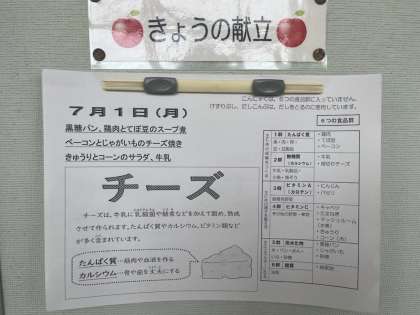 きょうの献立
7月1日(月)
黒糖パン、鶏肉とてぼ豆のスープ煮
ベーコンとじゃがいものチーズ焼き
きゅうりとコーンのサラダ、牛乳
チーズ
チーズは、牛乳に乳酸菌や酵素などをかえて固め、熟成
させて作られます。たんぱく質やカルシウム、ビタミン類など
が多く含まれています。
たんぱく質…筋肉や血液を作る
カルシウム…骨や歯を丈夫にする
こんにゃくは、6つの食品群に入っていません。
けずりぶし、だしこんぶは、だしをとるのに使用しています。
6つの食品群
1群 たんぱく質
鶏肉
てぼ豆
ベーコン
2群 無機質
(カルシウム)
牛乳
3群 ビタミンA
(カロテン)
にんじん
パセリ
4群 ビタミンC
キャベツ
たまねぎ
マッシュルーム
きゅうり
コーン
5群 炭水化物
黒糖パン
じゃがいも
6群 脂質